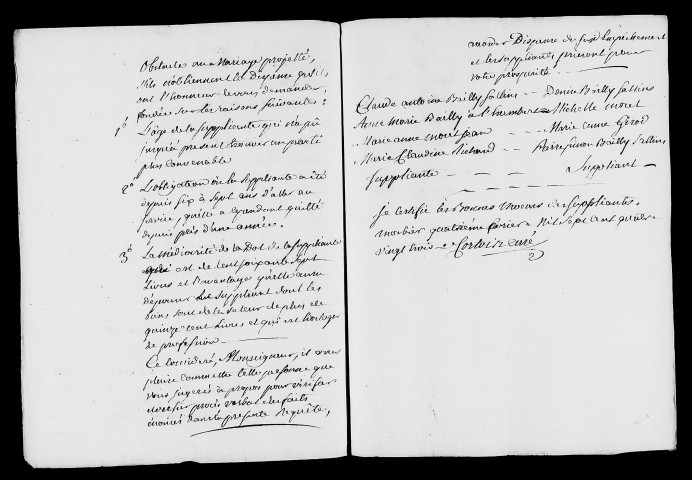 obstacle au mariage projetté,
s'ils n'obtiennent la Dispense qu'ils
ont l'honneur de vous demander,
fondée sur les raisons suivantes :
1° L'age de la suppliante qui n'a pû
jusqu'a present trouver un parti
plus convenable
2° L'obligation ou la suppliante a été
depuis six à sept ans d'aller au
service, qu'elle a cependant quitté
depuis plus d'une année.
3° La médiocrité de la Dot de la suppliante
qui est de cent soixante sept
Livres et l'avantage qu'elle aura
d'épouser le suppliant dont les
biens sont de la valeur de plus de
quinze cent Livres et qui est horloger
de profession
Ce considéré, Monseigneur, il vous
plaise commettre telle personne que
vous jugerés à propos pour vérifier
procès verbal des faits
énoncés dans la présente Requête,
accorder Dispense de susd. Empechement
et les suppliants prieront pour
votre prosperité
Claude antoine Bailly Sallins Denis Bailly Sallins
Anne Marie Bailly à l'humbert Michelle moret
Marie anne moret Jean Marie anne Girod
Marie Claudine Michaud Pierre simon Bailly Sallins
suppliante Suppliant
Je certifie les Bonnes moeurs des suppliants.
morbier quatrième fevrier mil sept cent quatre
vingt trois curé